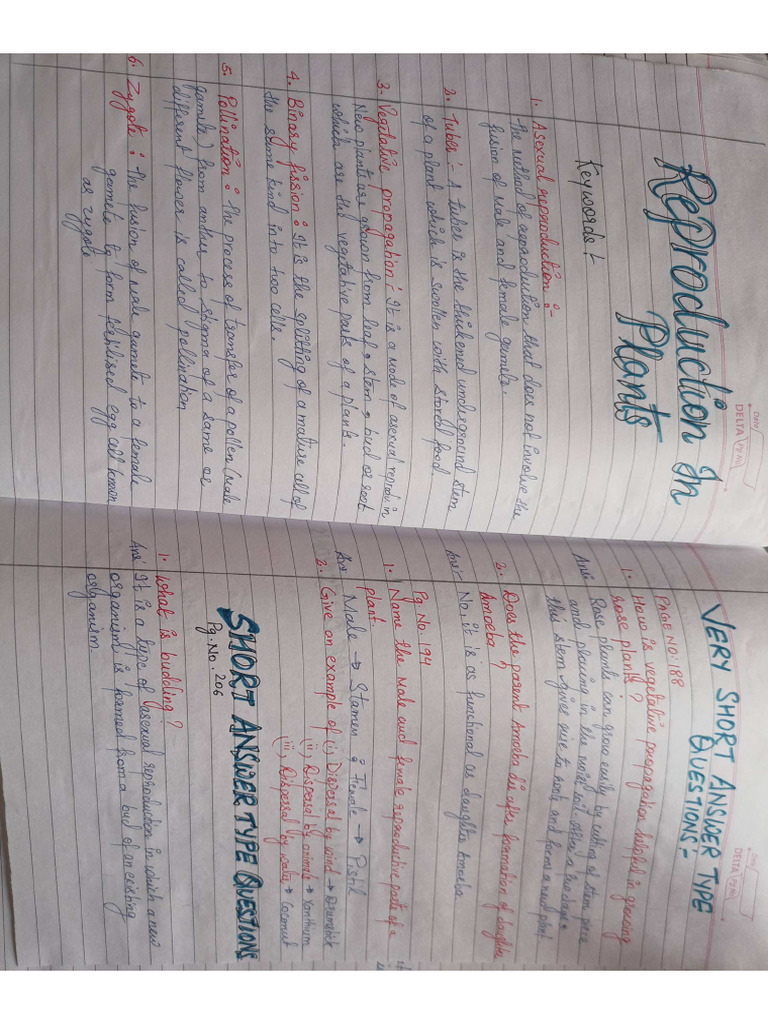 Date
DELTA Pg No
Reproduction In
Plants
Keywords :-
1. Asexual reproduction :-
The method of reproduction that does not involve the
fusion of male and female gamete.
2. Tuber :- A tuber is the thickened underground stem
of a plant which is swollen with stored food
3. Vegetative propagation : It is a mode of asexual reprodu in
New plants are grown from leaf, stem, bud or root
which are the vegetative parts of a plants.
4. Binary fission : It is the splitting of a mature cell of
the same kind into two cells.
5. Pollination : The process of transfer of a pollen (male
gamete) from anther to stigma of a same or
different flower is called pollination
6. Zygote : The fusion of male gamete to a female
gamete to form fertilised egg cell known
as zygote
Date
DELTA Pg No
VERY SHORT ANSWER TYPE
QUESTIONS :-
PAGE NO: 188
1. How is vegetative propagation helpful in growing
rose plants ?
Ans: Rose plants can grow easily by cutting of stem piece
and placing in the moist soil. After a few days
this stem gives rise to roots and form a new plant
2. Does the parent Amoeba die after formation of daughter
Amoeba ?
Ans: No, it is as functional as daughter Amoeba
Pg No. 194
1. Name the Male and female reproductive parts of a
plant.
Ans: Male → Stamen & Female → Pistil
2. Give an example of (i) Dispersal by wind → Drumstick
(ii) Dispersal by animals → Xanthium
(iii) Dispersal by water → Coconut
SHORT ANSWER TYPE QUESTIONS
Pg. No. 206
1. What is budding ?
Ans: It is a type of asexual reproduction in which a new
organism is formed from a bud of an existing
organism.